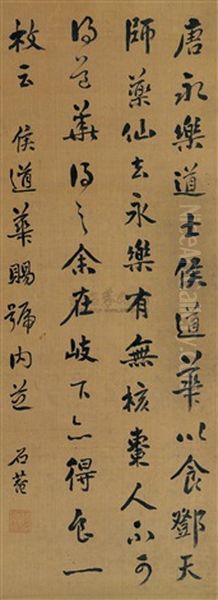 唐永樂道士侯道華以食鄧天
師藥仙去永樂有無核棗人不可
得道華得之余在岐下亦得食一
枚云 侯道華賜號內
石菴